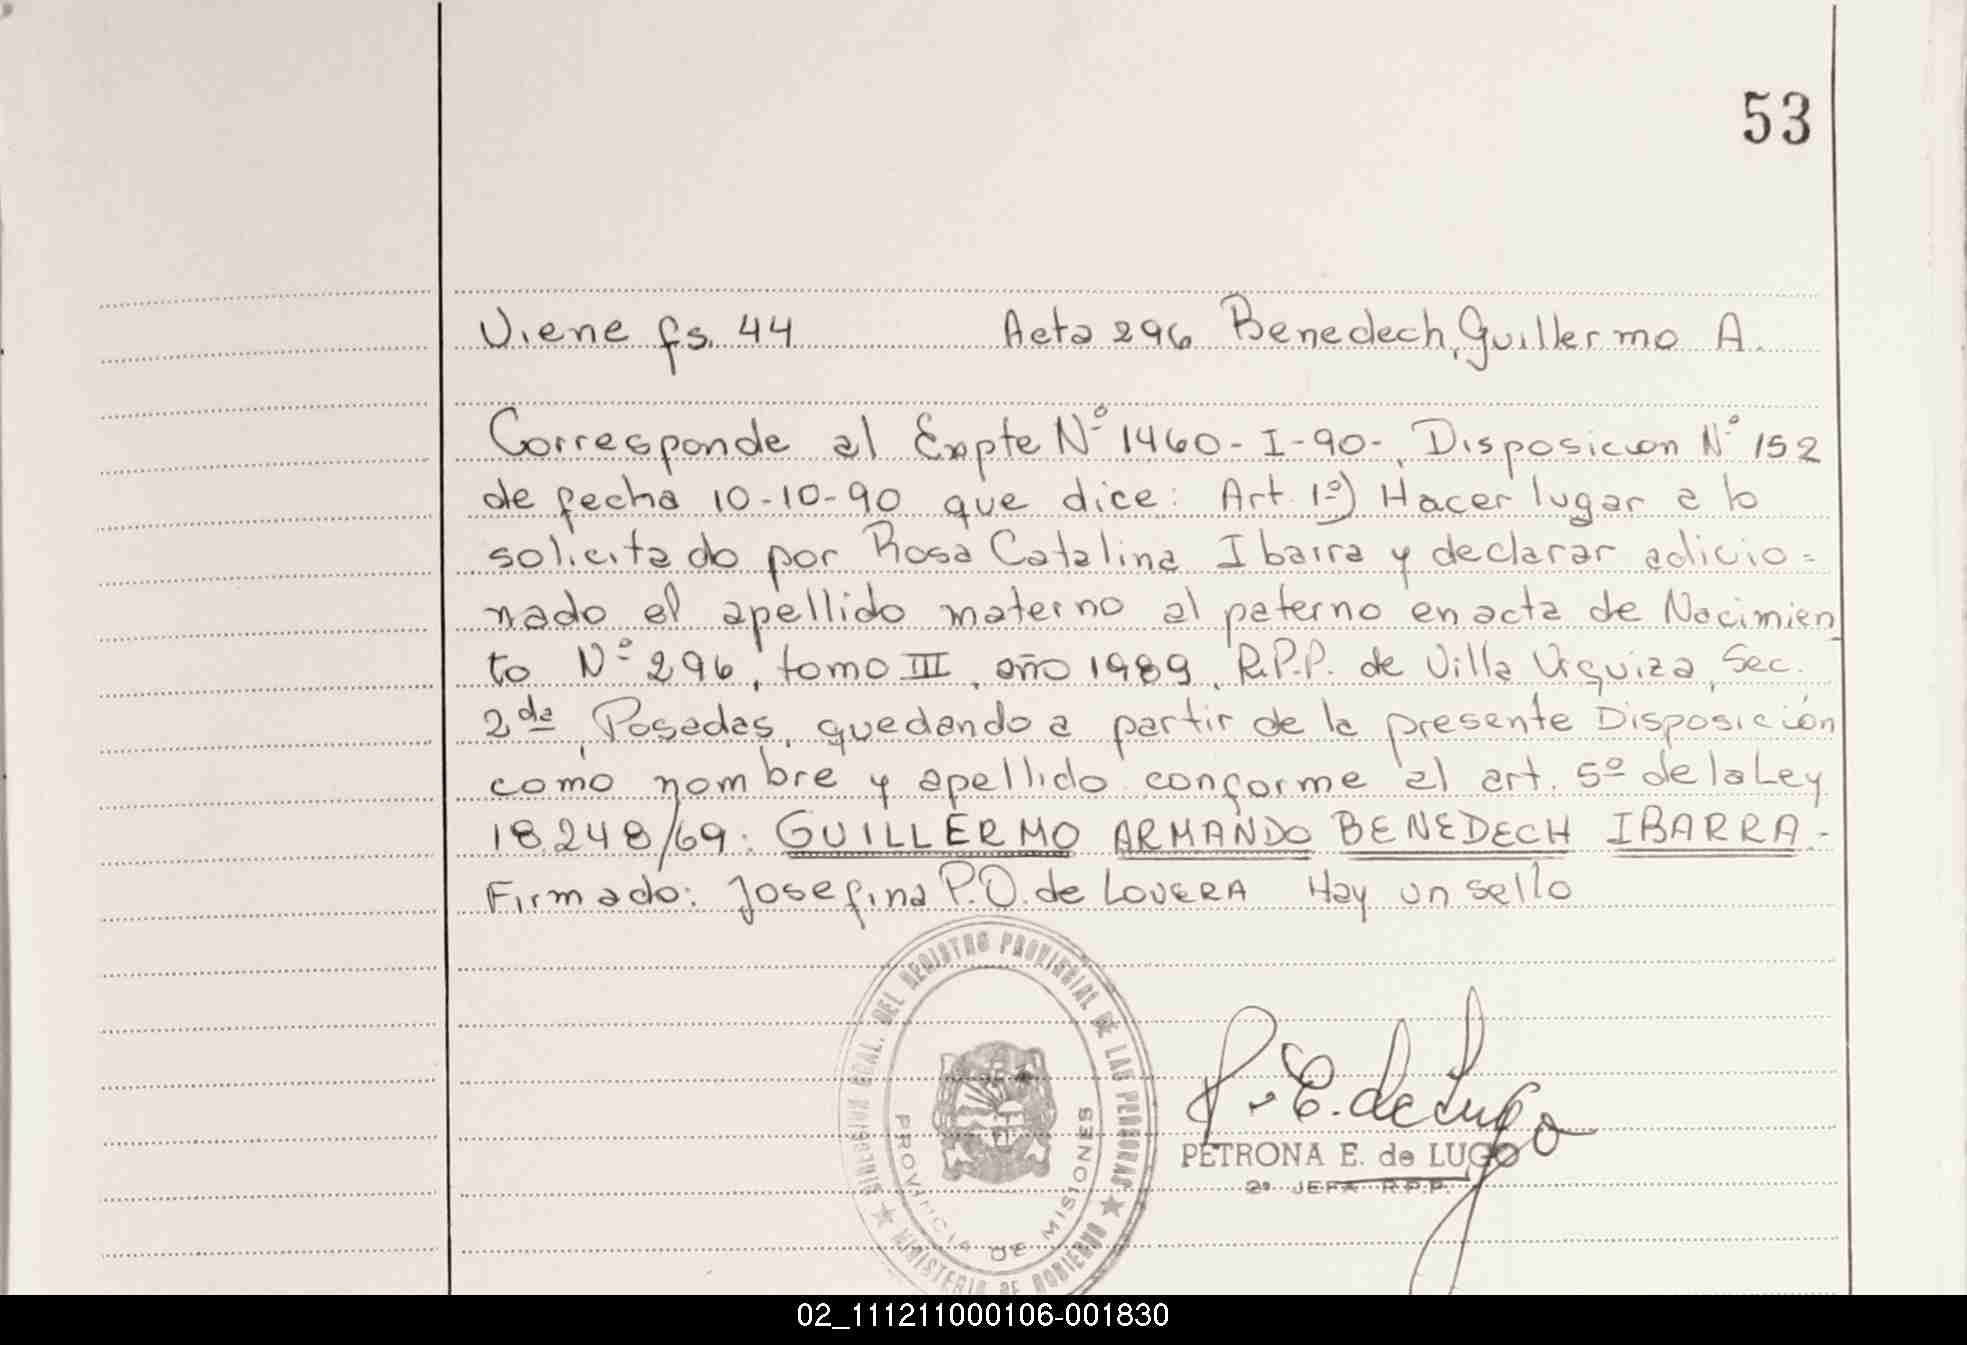 53
Viene fs. 44 Acta 296 Benedech, Guillermo A.
Corresponde al Expte Nº 1460-I-90-, Disposicion Nº 152
de fecha 10-10-90 que dice: Art. 1º) Hacer lugar a lo
solicitado por Rosa Catalina Ibarra y declarar adicio=
nado el apellido materno al paterno en acta de Nacimien
to Nº 296, tomo III, año 1989, R.P.P. de Villa Urquiza, Sec.
2da, Posadas, quedando a partir de la presente Disposición
como nombre y apellido conforme al art. 5º de la Ley
18.248/69: GUILLERMO ARMANDO BENEDECH IBARRA-
Firmado: Josefina P.O. de LOVERA Hay un sello
DIRECCION GRAL. DEL REGISTRO PROVINCIAL DE LAS PERSONAS
★ MINISTERIO DE GOBIERNO ★
PROVINCIA DE MISIONES
P. E. de Lugo
PETRONA E. de LUGO
2º JEFA R.P.P.
02_111211000106-001830